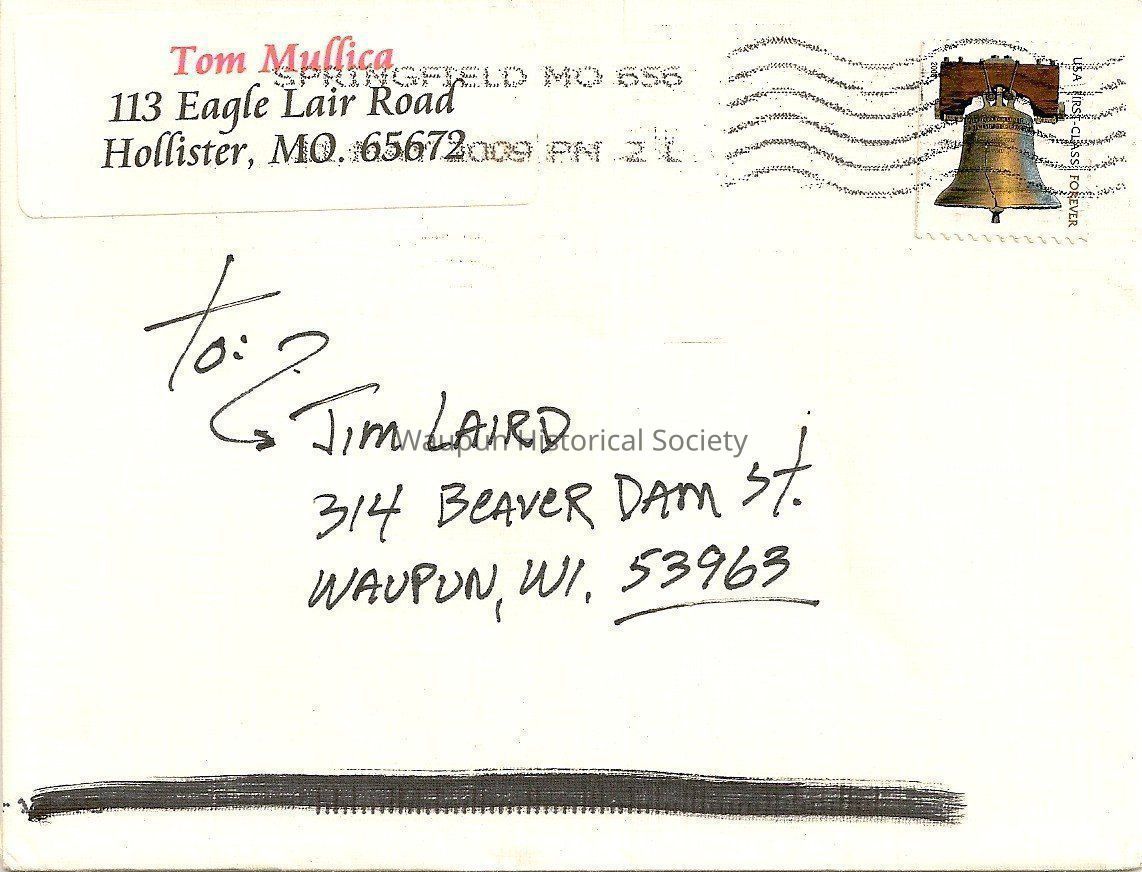 Tom Mullica
113 Eagle Lair Road
Hollister, MO. 65672
SPRINGFIELD MO 656
2009 PM 2 L
USA FIRST-CLASS FOREVER
To:
Jim LAIRD
314 BeAVeR DAm St.
WAUPUN, WI. 53963
Waupun Historical Society